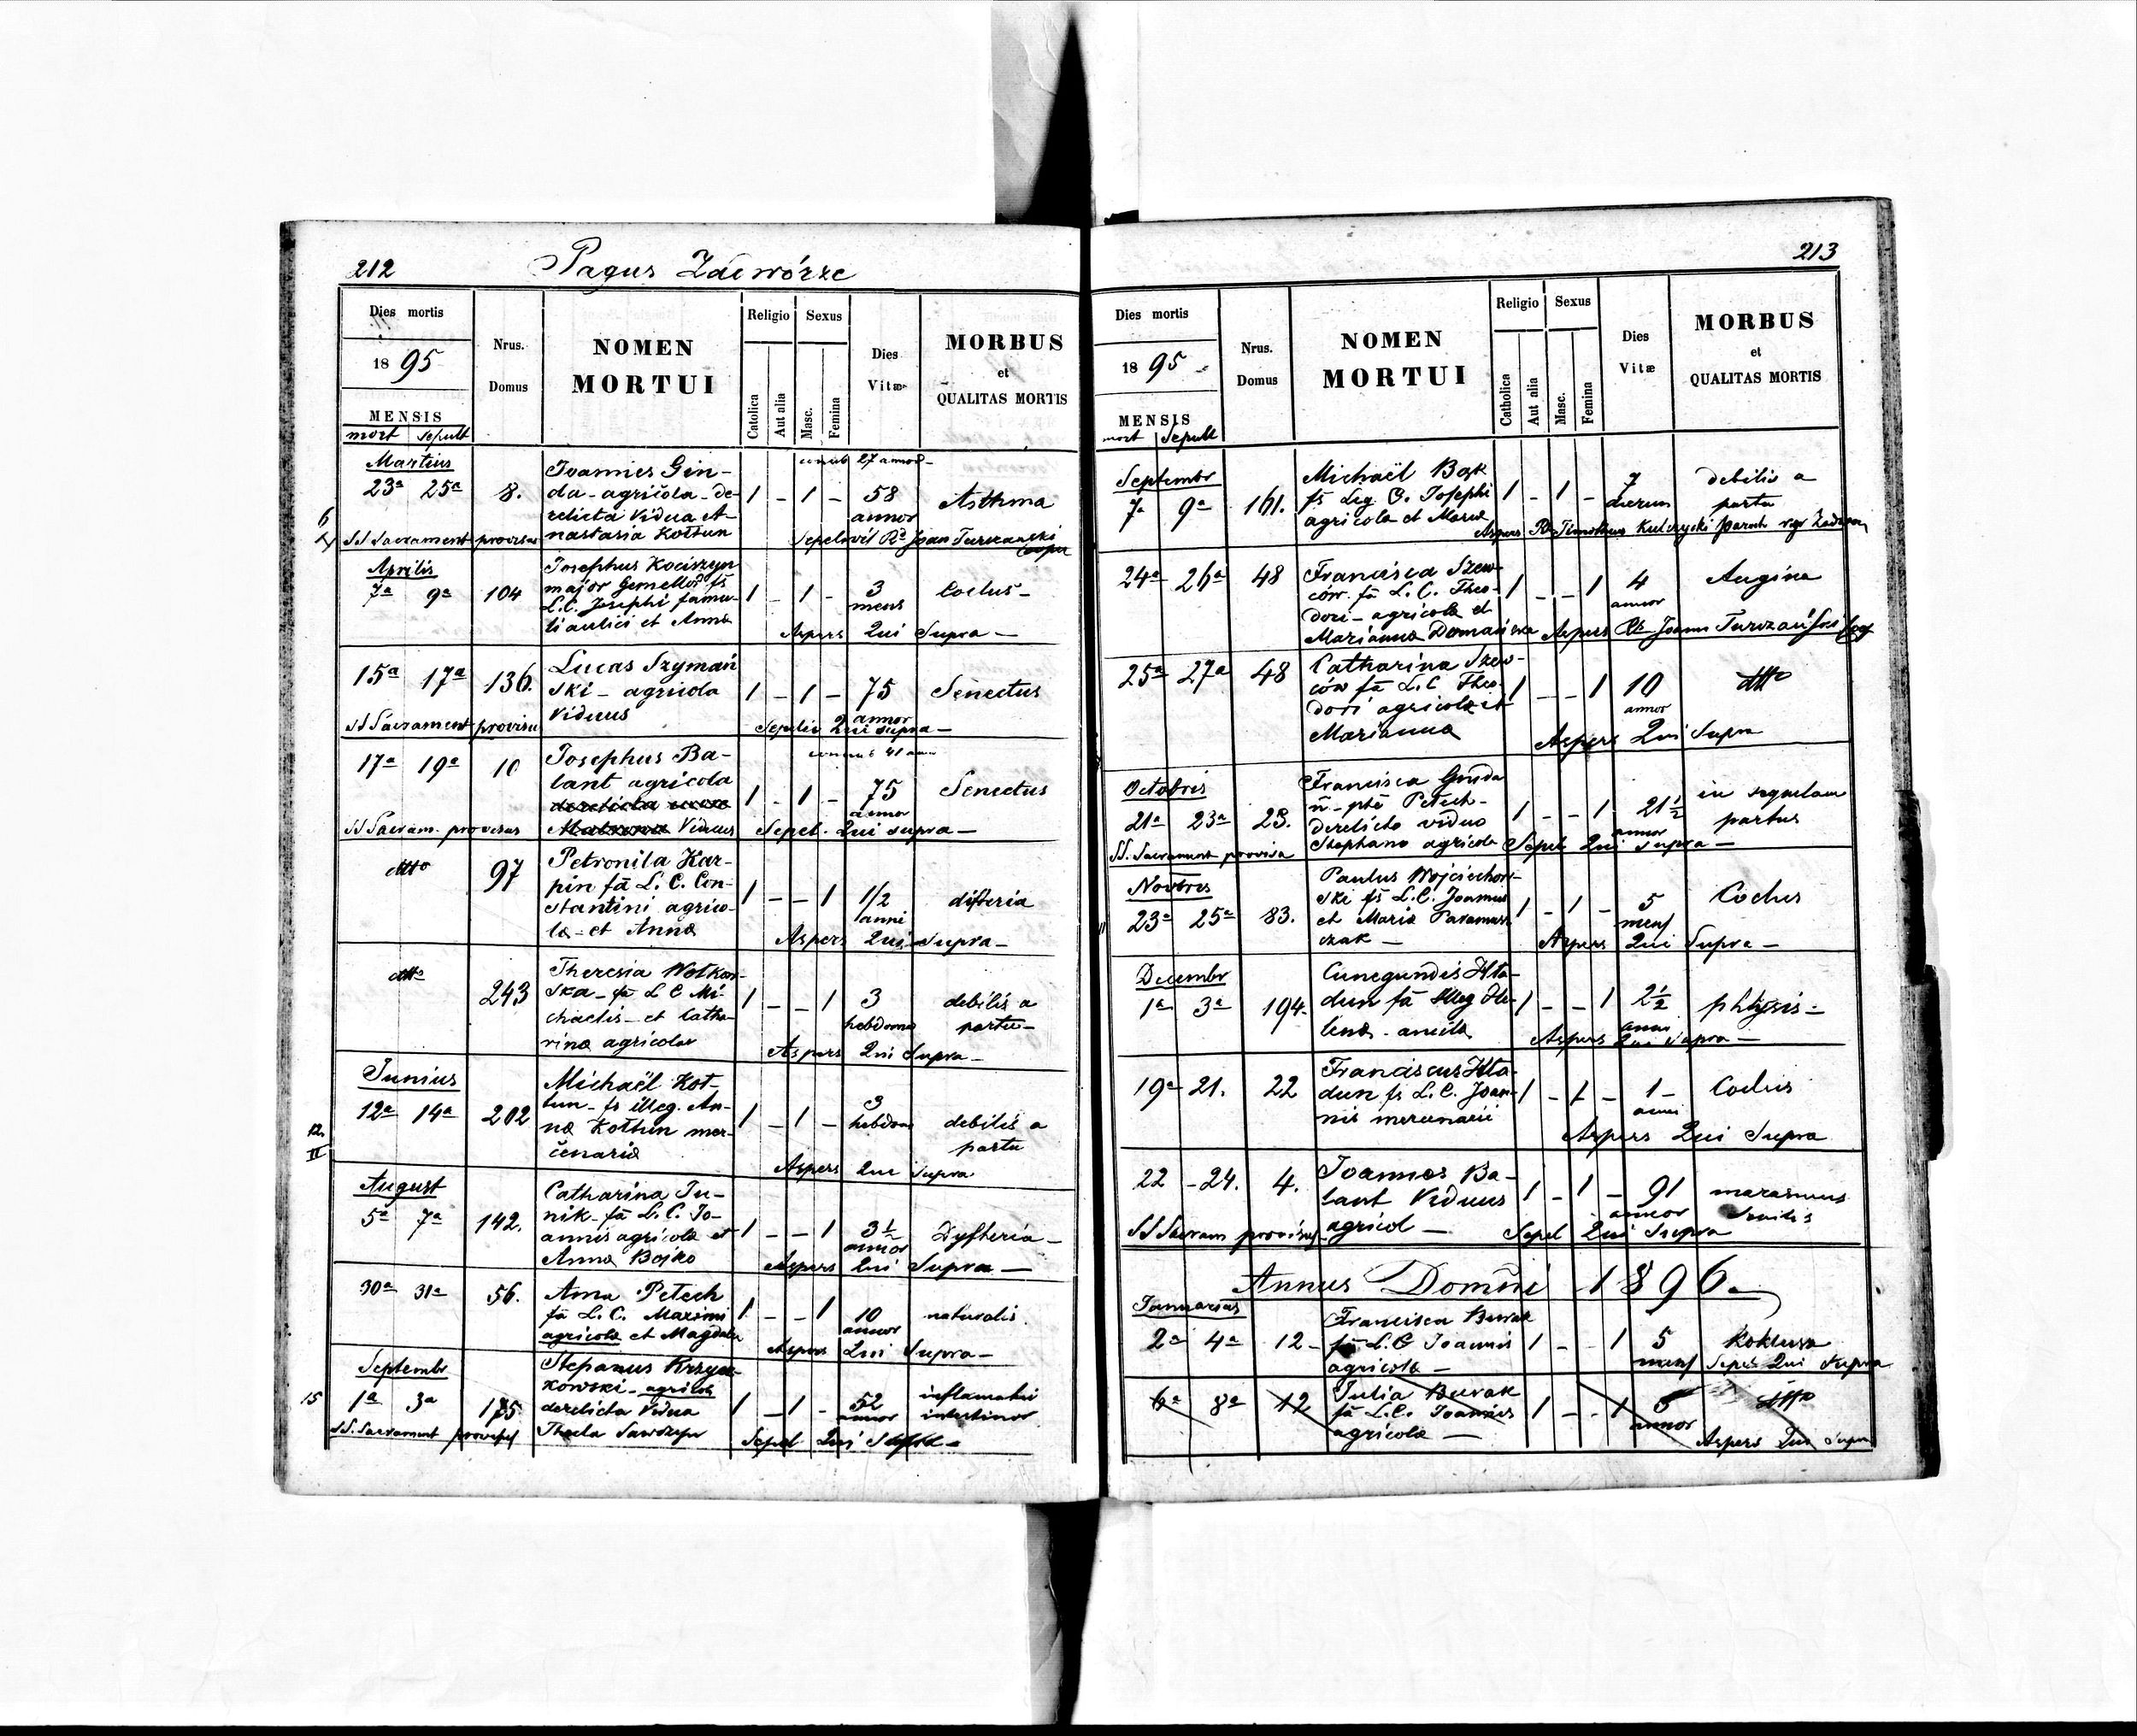 212 Pagus Zadwórze
Dies mortis
1895
MENSIS
mort sepult
Nrus.
Domus
NOMEN
MORTUI
Religio
Catolica
Aut alia
Sexus
Masc.
Femina
Dies
Vitæ
MORBUS
et
QUALITAS MORTIS
Martius
27 annor
23a 25a 8. Joannes Gin-
da - agricola - de-
relicta vidua A-
nastasia Kotłun
1 - 1 - 58
annor
Asthma
6
SS Sacrament provisus
Sepelivit Rd Joan Turzański
Cooper
Aprilis
7a 9a 104 Josephus Kociszyn
major Gemellor fs
L.C. Josephi famu-
li aulici et Anna
1 - 1 - 3
mens
Coclus -
Aspers Qui Supra -
15a 17a 136. Lucas Szymań
ski - agricola
viduus
1 - 1 - 75
annor
Senectus
SS Sacrament provisu
Sepeliv Qui supra -
41
17a 19a 10 Josephus Ba-
lant agricola
derelicta uxore
Matrona Viduus
1 - 1 - 75
annor
Senectus
SS Sacram. provisus
Sepel. Qui supra -
dtto 97 Petronila Kar-
pin fa L. C. Con-
stantini agrico-
læ - et Anna
1 - - 1 1/2
anni
difteria
Aspers Qui Supra -
dtto 243 Theresia Wolkow-
ska - fa L C Mi-
chaelis - et Catha-
rina agricolar
1 - - 1 3
hebdoma
debilis a
partu -
Aspers Qui Supra -
Junius
12a 14a 202 Michaël Kot-
łun - fs illeg. An-
na Kotłun mer-
cenaria
1 - 1 - 3
hebdom
debilis a
partu
12.
II
Aspers Qui Supra
August
5a 7a 142. Catharina Ju-
nik - fa L. C. Jo-
annis agricola et
Anna Bojko
1 - - 1 3 1/2
annor
Dyfteria -
Aspers Qui Supra -
30a 31a 56. Anna Petech
fa L. C. Maximi
agricola et Magdala
1 - - 1 10
annor
naturalis.
Aspers Qui Supra -
Septembr
15 1a 3a 175 Stepanus Krzyż-
kowski - agricola
derelicta Vidua
Thecla Sawczyn
1 - 1 - 52
annor
inflamatio
intestinor
SS. Sacrament provisus
Sepel Qui Supra -
213
Dies mortis
1895
MENSIS
mort Sepult
Nrus.
Domus
NOMEN
MORTUI
Religio
Catholica
Aut alia
Sexus
Masc.
Femina
Dies
Vitæ
MORBUS
et
QUALITAS MORTIS
Septembr
7a 9a 161. Michaël Bąk
fs Leg C. Josephi
agricola et Maria
1 - 1 - 7
dierum
debilis a
partu
Aspers Rd Timotheus Kulczycki paroch
24a 26a 48 Francisca Szew-
ców fa L. C. Theo-
dori - agricola et
Marianna Domańska
1 - - 1 4
annor
Angina
Aspers Rd Joann Turzański Coop
25a 27a 48 Catharina Szew-
ców fa L.C Theo-
dori agricola et
Marianna
1 - - 1 10
annor
dtto
Aspers Qui Supra
Octobris
21a 23a 23. Francisca Ginda
n - pte Petech -
derelicto viduo
Stephano agricola
1 - - 1 21 1/2
annor
in sequelam
partus
SS. Sacrament provisa
Sepel Qui supra -
Novbris
23a 25a 83. Paulus Wojciechow-
ski fs L.C. Joannis
et Maria Paramusz
czak -
1 - 1 - 5
mens
Coclus
Aspers Qui Supra -
Decembr
1a 3a 194. Cunegundis Hła-
dun fa Illeg He-
lena - ancila
1 - - 1 2 1/2
anni
phtysis -
Aspers Qui Supra -
19a 21. 22 Franciscus Hła-
dun fs L.C. Joan-
nis mercenarii
1 - 1 - 1 -
anni
Coclus
Aspers Qui Supra
22 - 24. 4. Joannes Ba-
lant Viduus
agricol -
1 - 1 - 91
annor
marasmus
senilis
SS Sacram provisus
Sepel Qui Supra
Annus Domini 1896.
Januarius
2a 4a 12 - Francisca Burak
fa L.C Joannis
agricola -
1 - - 1 5
mens
Koklusz
Sepel Qui Supra
6a 8a 12 Julia Burak
fa L.C. Joannis
agricola -
1 - - 1 5
annor
dtto
Aspers Qui Supra